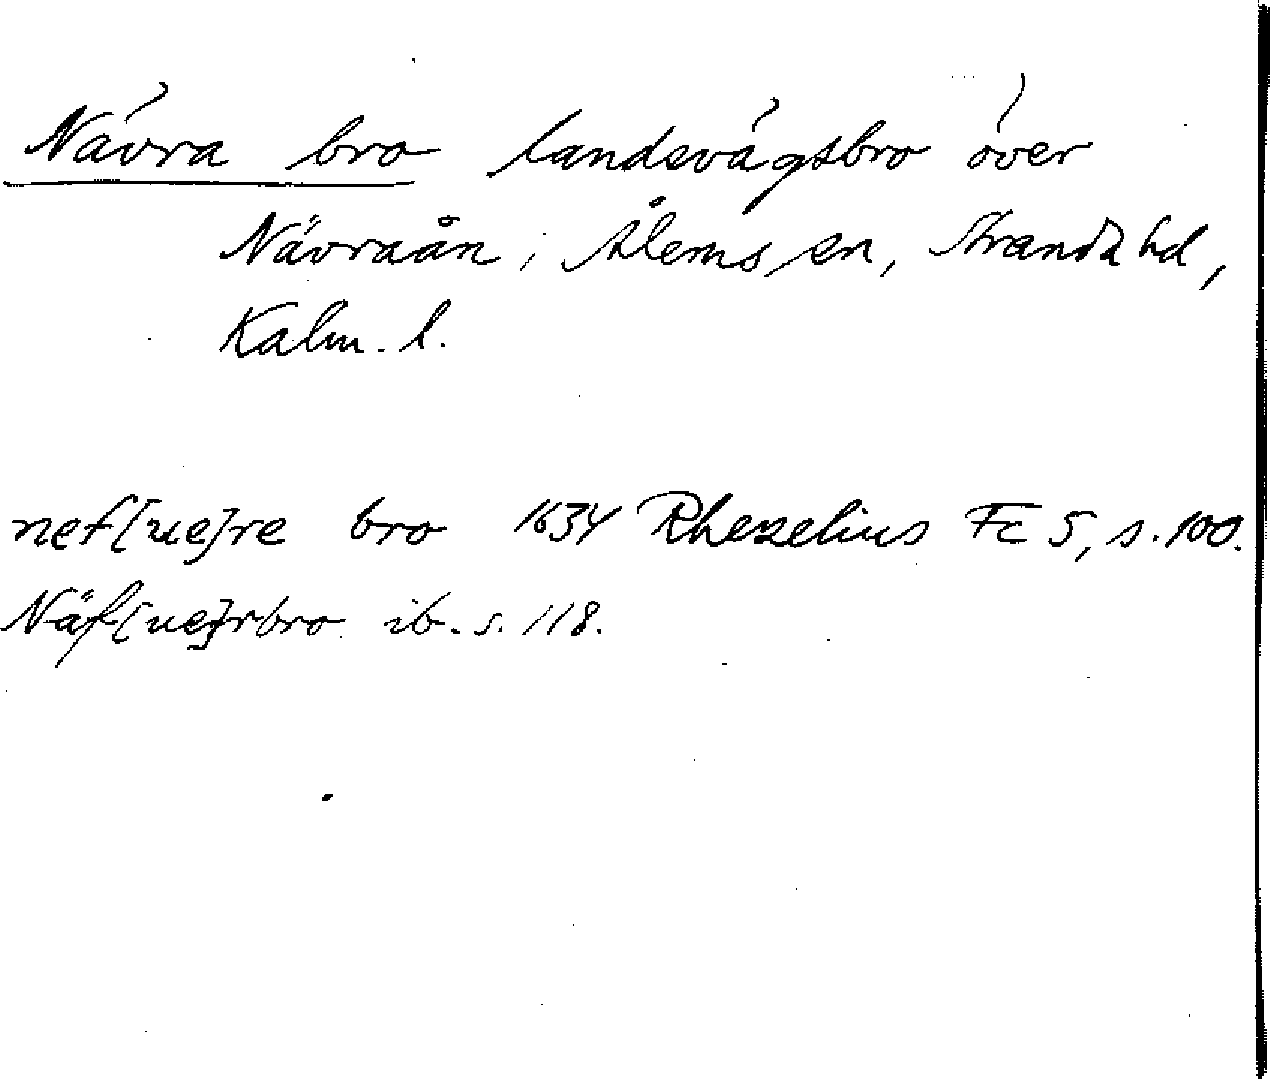 Nävra bro landsvägsbro över
Nävraån i Ålems sn, Stranda hd,
Kalm. l.
nef[ue]re bro 1634 Rhezelius Fc 5, s. 100.
Näf[ue]rbro ib. s. 118.